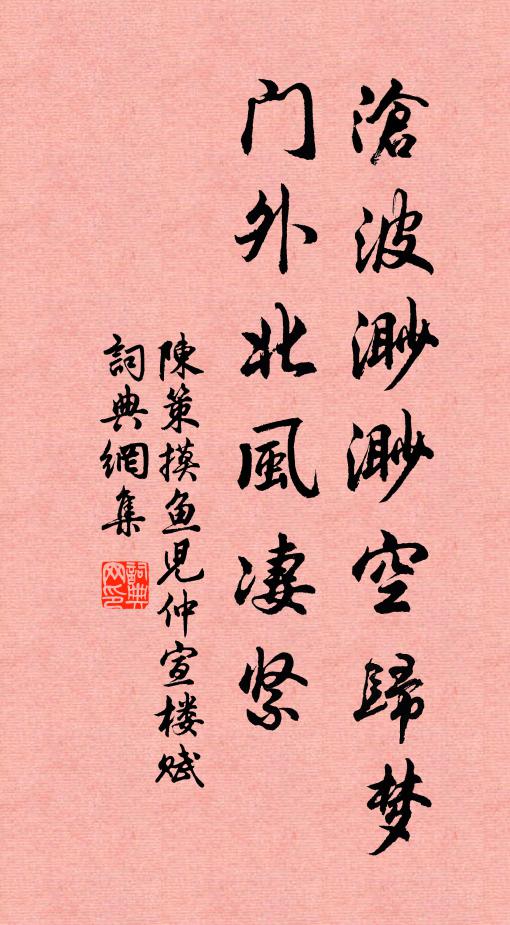 滄波渺渺空歸梦
门外北風凄紧
陳策摸鱼児仲宣楼赋
詞典網集
詞典网印